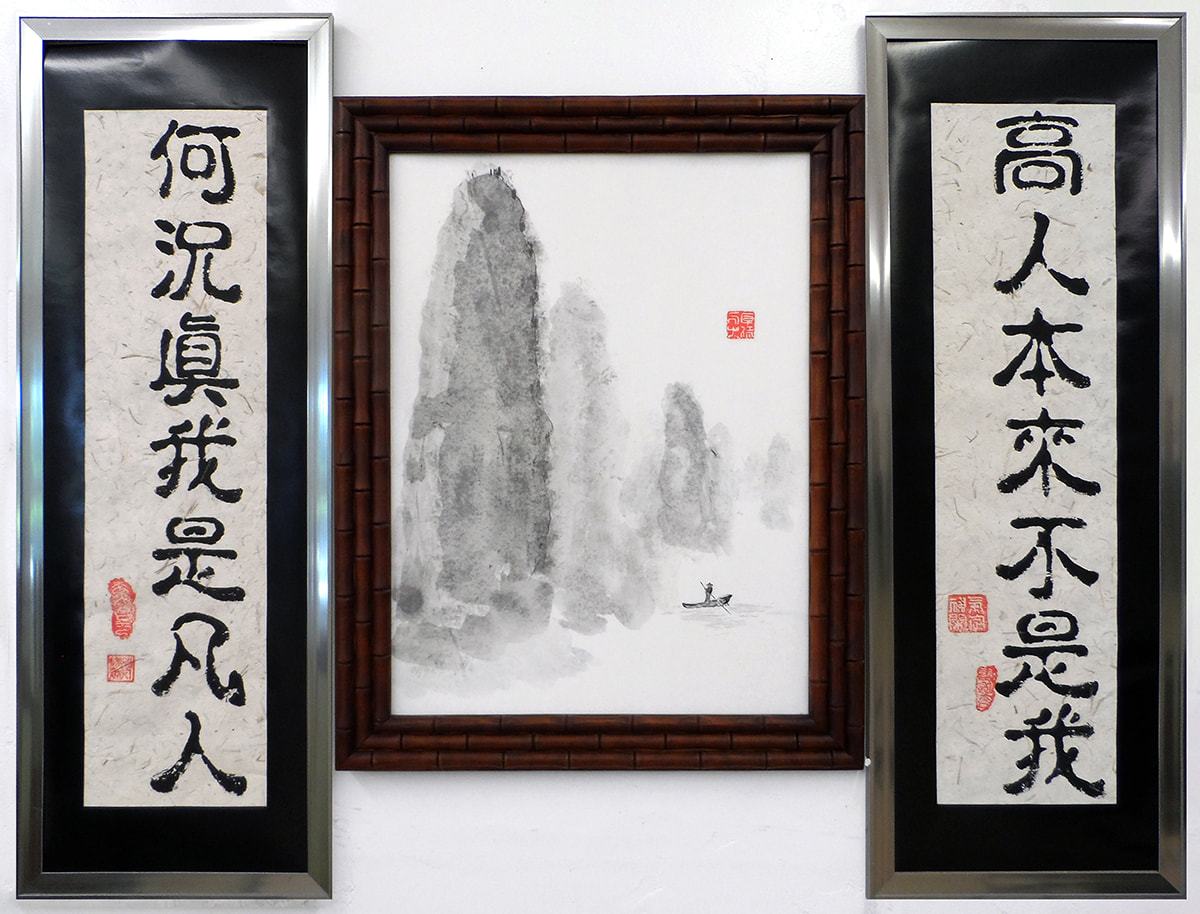 高人本來不是我
何況眞我是凡人